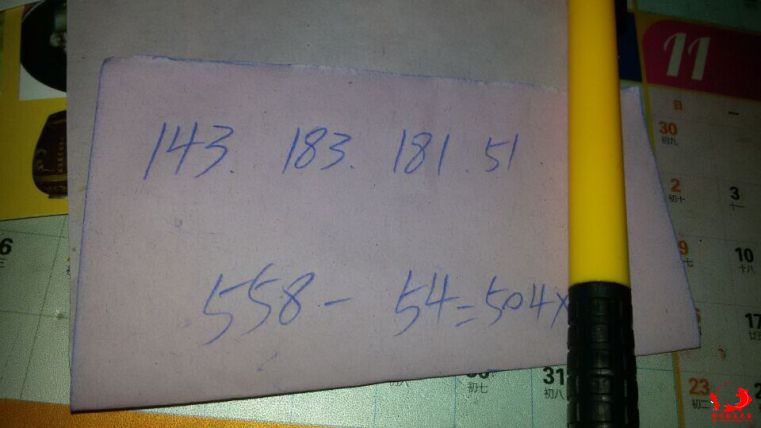 143. 183. 181. 51
558 - 54 = 504 x
11
日 一
30
初九
2 3
初十 十一
9 10
十八
17
23
初二
6
31
初七 初八